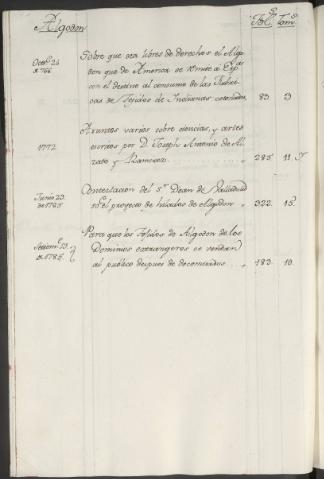 Algodon
Fol.s Tom.s
Sobre que sea libres de derechos el Algo
don que de America se remite a Esp.ª
con el destino al consumo de las Fabri
cas de Tejidos de Indianas 83 9
1772
Asuntos varios sobre ciencias, y artes
escritos por D. Joseph Antonio de Al
zate y Ramirez 285 11
Junio 23 de 1785
Contestacion del S.r Dean de Valladolid
el proyecto de hilados de Algodon 322. 15
de 1785.
Para que los Tejidos de Algodon de los
Dominios extrangeros se vendan
al publico despues de decomisados 183. 10.